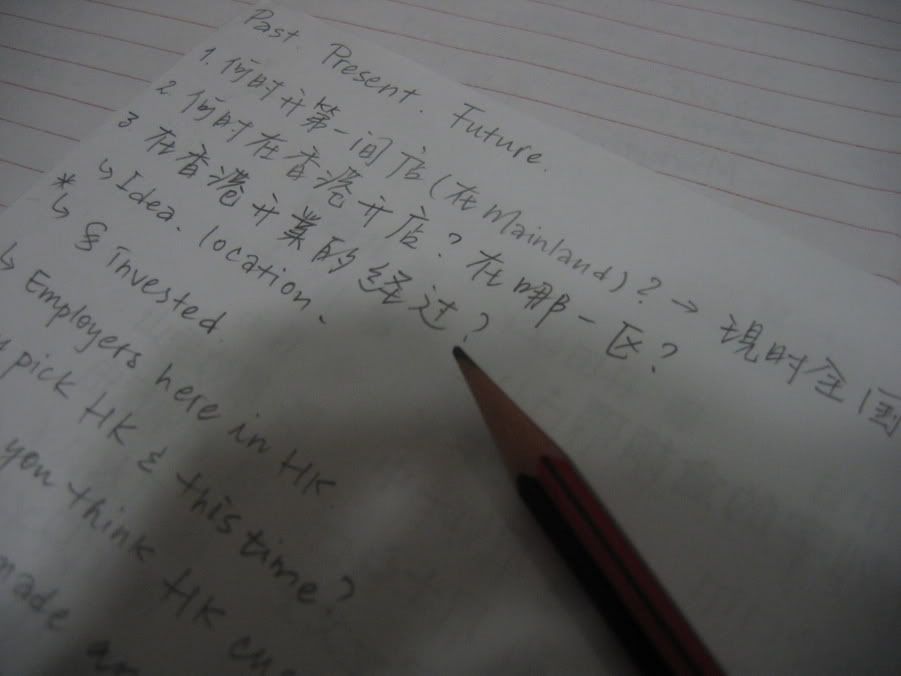 Past. Present. Future.
1. 何时开第一间店(在Mainland)? → 現时全国
2. 何时在香港开店? 在哪一区?
3 在香港开業的经过?
↳ Idea. location.
* ↳ $ invested.
↳ Employers here in HK
pick HK & this time?
you think HK cu
made an